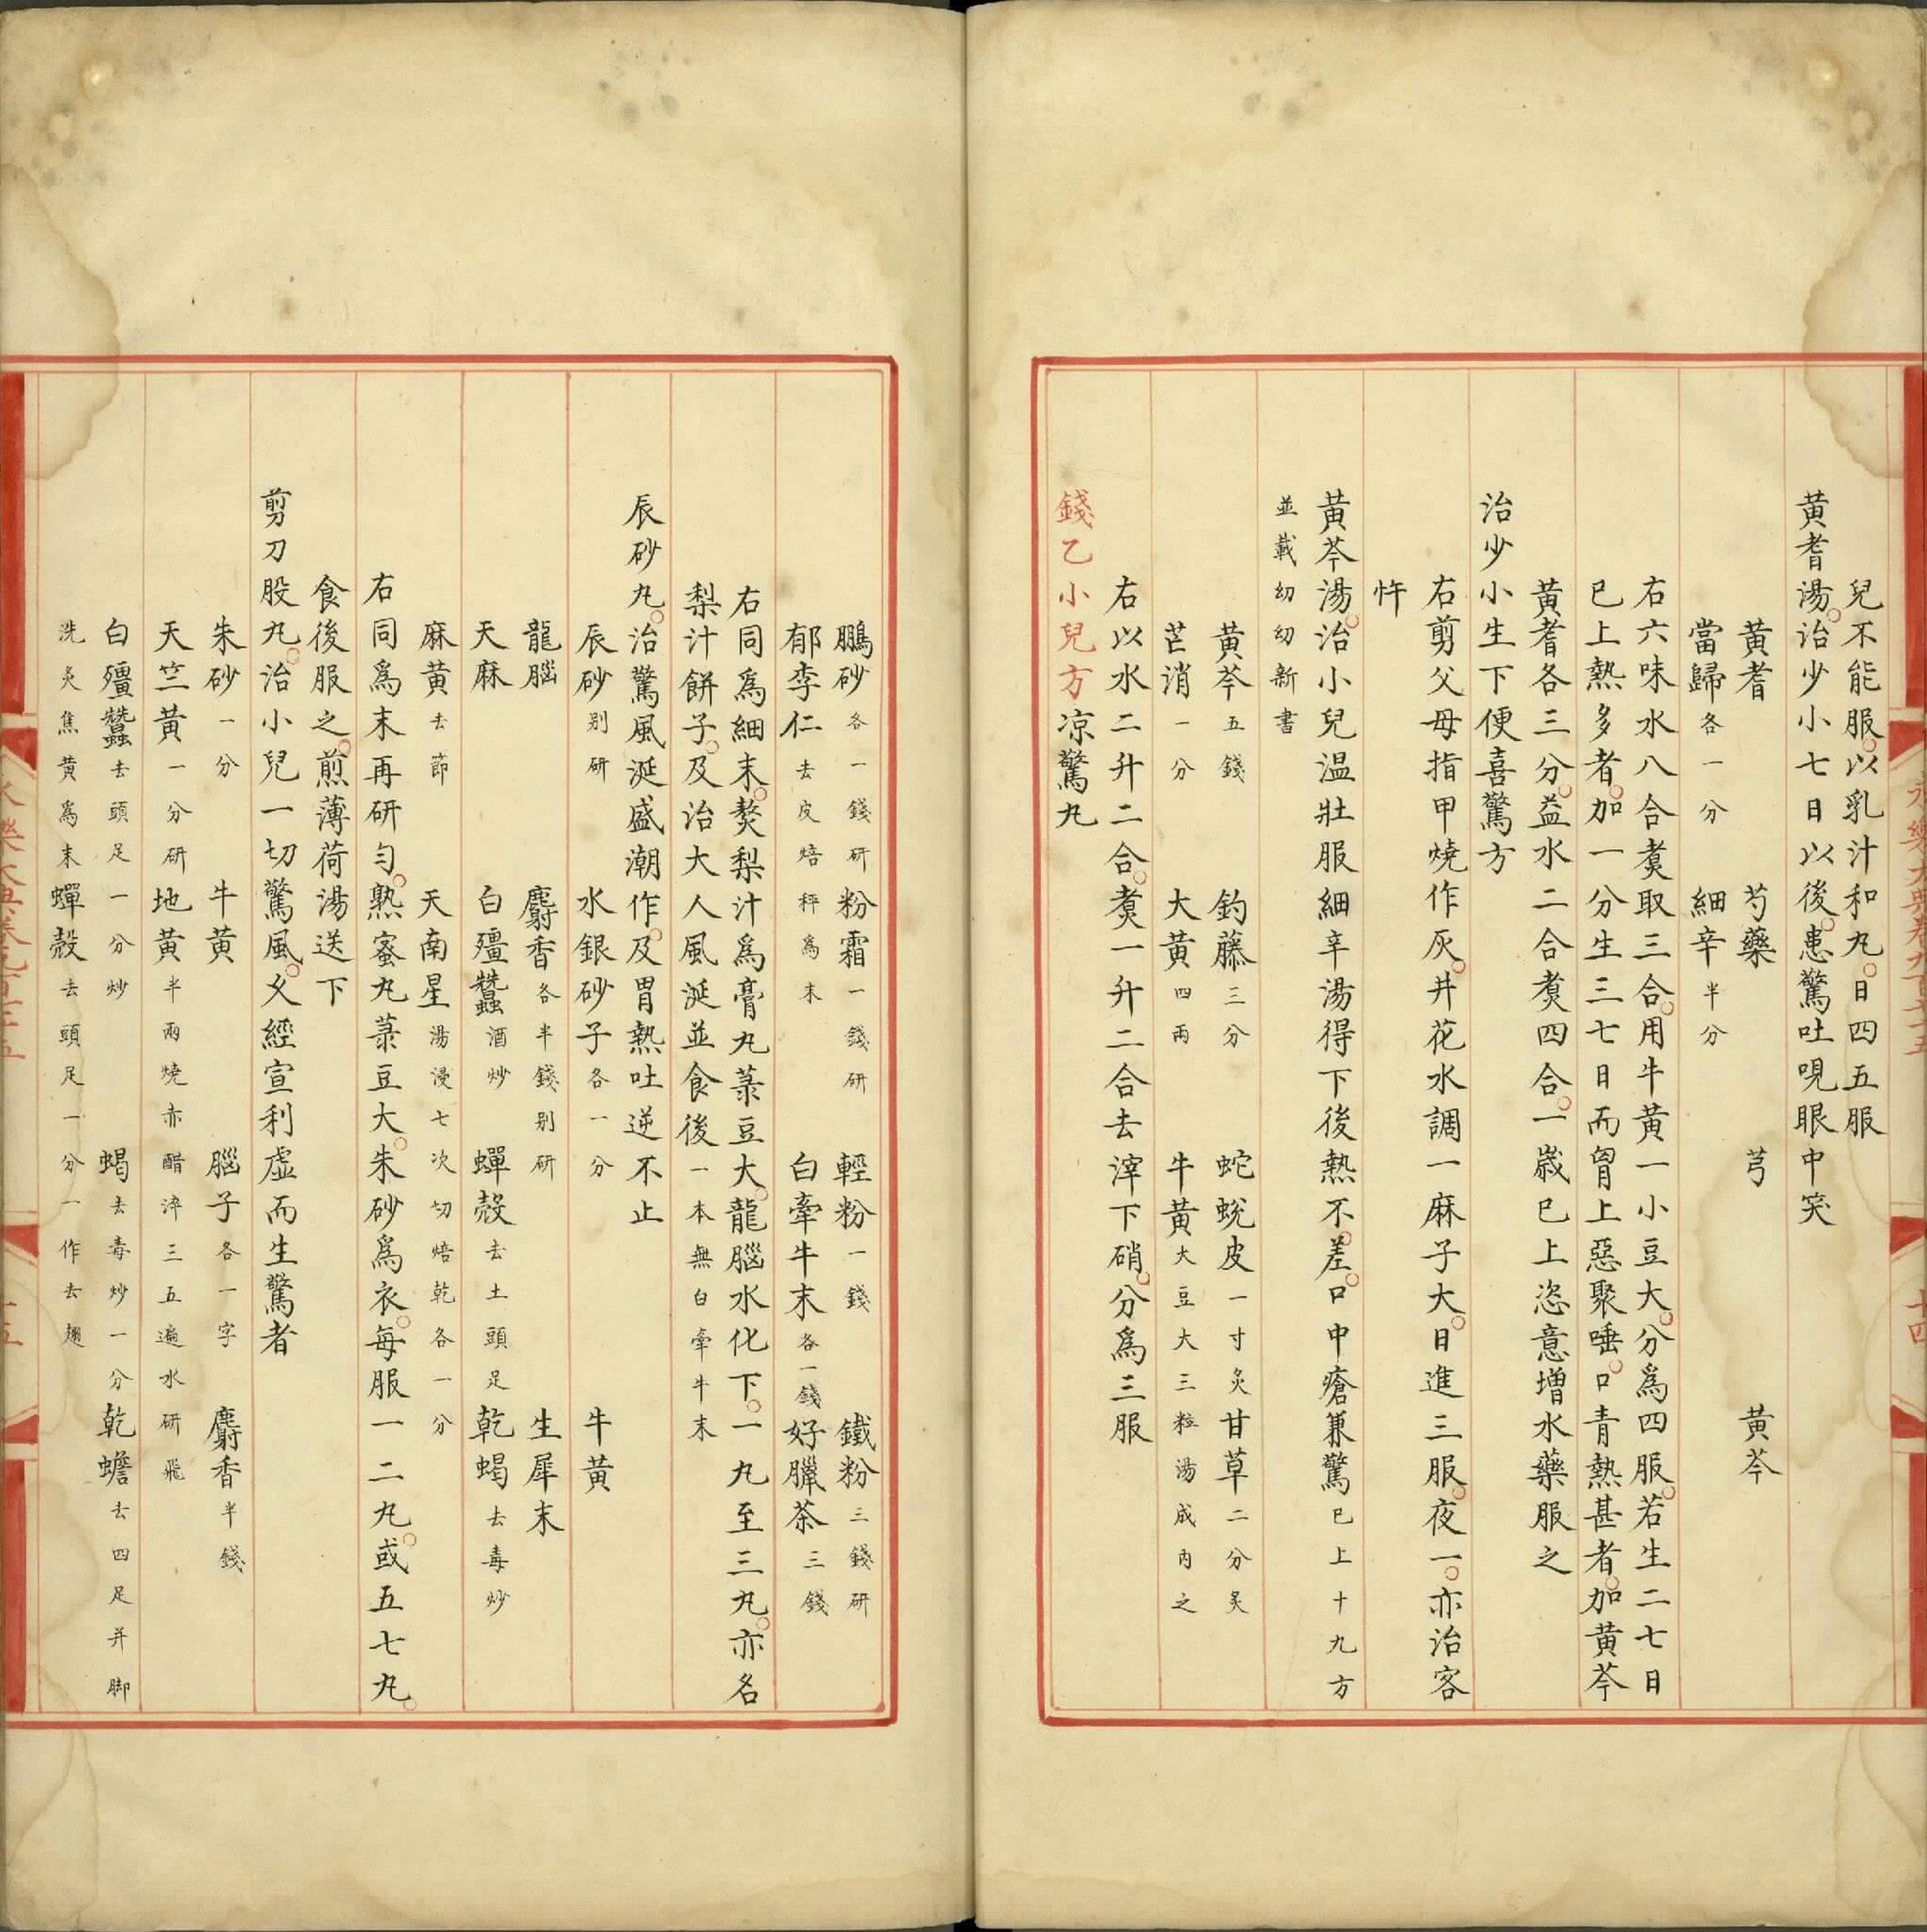 兒不能服以乳汁和丸日四五服
黃耆湯治少小七日以後患驚吐哯眼中哭
黃耆 芍藥 芎 黃芩
當歸各一分 細辛半分
右六味水八合煑取三合用牛黃一小豆大分爲四服若生二七日
巳上熱多者加一分生三七日而胷上惡聚唾口青熱甚者加黃芩
黃耆各三分益水二合煑四合一歲巳上恣意增水藥服之
治少小生下便喜驚方
右剪父母指甲燒作灰井花水調一麻子大日進三服夜一亦治客
忤
黃芩湯治小兒温壯服細辛湯得下後熱不差口中瘡兼驚巳上十九方
並載幼幼新書
黃芩五錢 釣藤三分 蛇蛻皮一寸炙 甘草二分炙
芒消一分 大黃四兩 牛黃大豆大三粒湯成內之
右以水二升二合煑一升二合去滓下硝分爲三服
錢乙小兒方凉驚丸
鵬砂各一錢研 粉霜一錢研 輕粉一錢 鐵粉三錢研
郁李仁去皮焙秤爲末 白牽牛末各一錢 好臘茶三錢
右同爲細末熬梨汁爲膏丸菉豆大龍腦水化下一丸至三丸亦名
梨汁餅子及治大人風涎並食後一本無白牽牛末
辰砂丸治驚風涎盛潮作及胃熱吐逆不止
辰砂别研 水銀砂子各一分 牛黃
龍腦 麝香各半錢别研 生犀末
天麻 白殭蠶酒炒 蟬殼去土頭足 乾蝎去毒炒
麻黃去節 天南星湯浸七次切焙乾各一分
右同爲末再研匀熟蜜丸菉豆大朱砂爲衣每服一二丸或五七丸
食後服之煎薄荷湯送下
剪刀股丸治小兒一切驚風乂經宣利虛而生驚者
朱砂一分 牛黃 腦子各一字 麝香半錢
天竺黃一分研 地黃半兩燒赤醋淬三五遍水研飛
白殭蠶去頭足一分炒 蝎去毒炒一分 乾蟾去四足并脚
洗炙焦黃爲末 蟬殼去頭足一分一作去翅